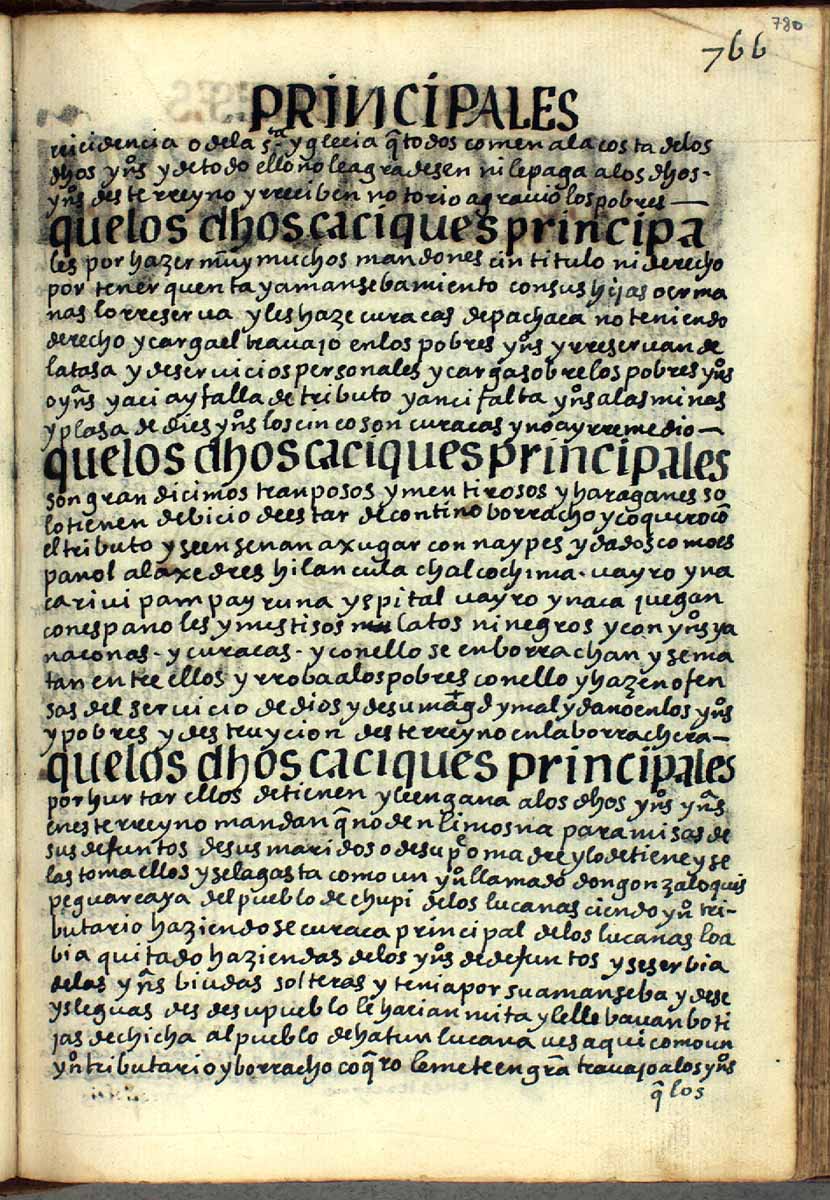 780
766
PRINCIPALES
recidencia o de la s.ta yglecia q̃ todos comen a la costa de los
dhos yn̊s y de todo ello no le agradesen ni le paga a los dhos
yn̊s deste rreyno y rreciben notorio agrauio los pobres—
que los dhos caciques principa
les por hazer muy muchos mandones cin titulo ni derecho
por tener quenta y amansebamiento con sus hijas o erma
nas lo rreserua y les haze curacas de pachaca no teniendo
derecho y carga el trauajo en los pobres yn̊s y rreseruan de
la tasa y de seruicios personales y carga sobre los pobres yn̊s
o yn̅s y aci ay falla de tributo y anci falta yn̊s a las minas
y plasa de dies yn̊s los cinco son curacas y no ay rremedio—
que los dhos caciques principales
son grandicimos tranposos y mentirosos y haraganes so
lo tienen de bicio de estar de contino borracho y coquero cõ
el tributo y se ensenan a xugar con naypes y dados como es
panol al axedres hilancula chalcochima uayro yna
ca riui pampayruna yspital uayro ynaca juegan
con espanoles y mestisos mulatos ni negros y con yn̊s ya
naconas - y curacas - y con ello se enborrachan y se ma
tan entre ellos y rroba a los pobres con ello y hazen ofen
sas del seruicio de dios y de su mag.d y mal y dano en los yn̊s
y pobres y destruycion deste rreyno en la borrachera—
que los dhos caciques principales
por hurtar ellos detienen y le engana a los dhos yn̊s yn̅s
en este rreyno mandan q̃ no den limosna para misas de
sus defuntos de sus maridos o de su p.e o madre y lo detiene y se
las toma ellos y se la gasta como un yn̊ llamado don gonzalo quis
pe guarcaya del pueblo de chupi de los lucanas ciendo yn̊ tri-
butario haziendose curaca principal de los lucanas lo a
bia quitado haziendas de los yn̊s de defuntos y se serbia
de las yn̅s biudas solteras y tenia por su amanseba y de se
ys leguas des de su pueblo le hacian mita y le llebauan boti
jas de chicha al pueblo de hatun lucana ues aqui como un
yn̊ tributario y borracho coq̃ro le mete en grã trauajo a los yn̊s
q̃ los